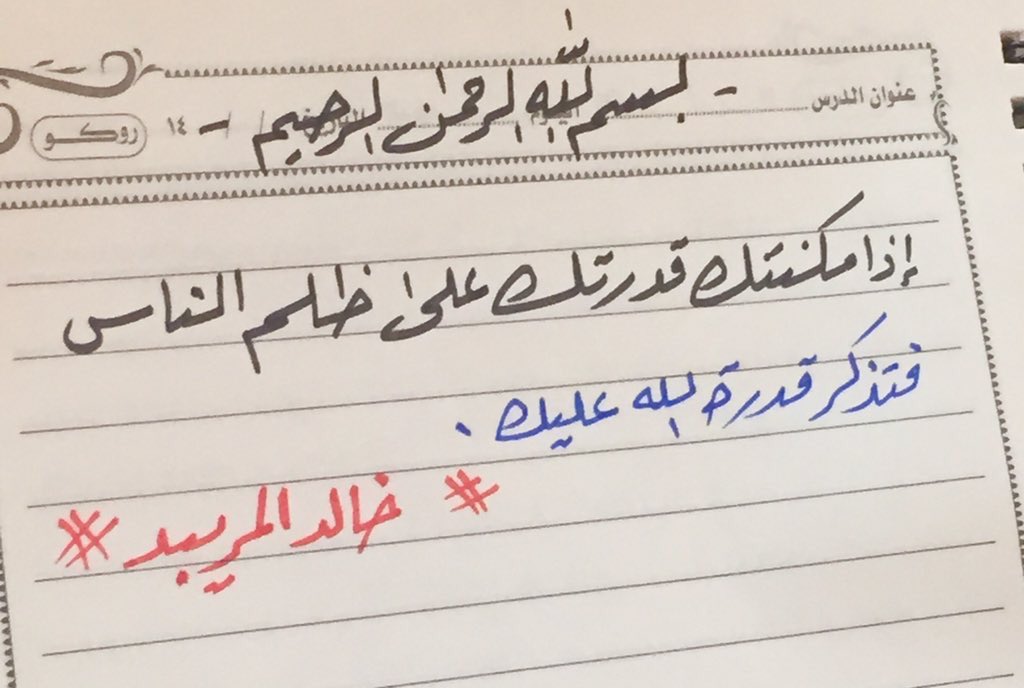 عنوان الدرس
- بسم الله الرحمن الرحيم -
١٤
روكو
إذا مكنتك قدرتك على ظلم الناس
فتذكر قدرة الله عليك .
# خالد المريبد #